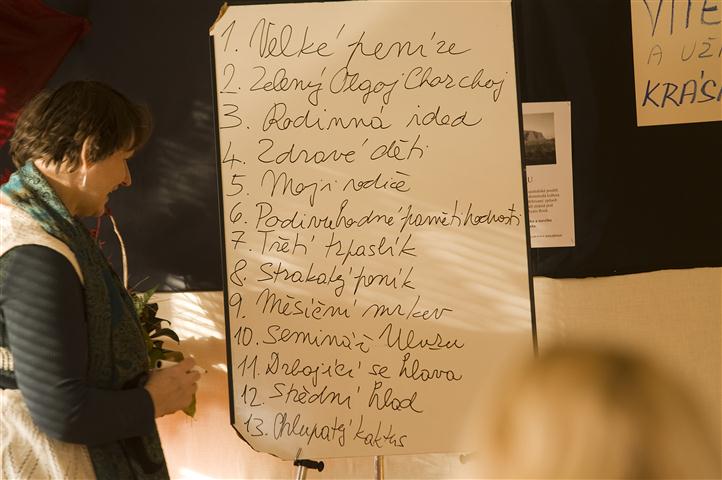 1. Velké peníze
2. Zelený Olgoj Chorchoj
3. Rodinná idea
4. Zdravé děti
5. Moji rodiče
6. Podivuhodné pamětihodnosti
7. Třetí trpaslík
8. Strakatý poník
9. Měsíční mrkev
10. Seminář Uluru
11. Drbající se hlava
12. Střední hlad
13. Chlupatý kaktus
VÍTE
A UŽ
KRÁS